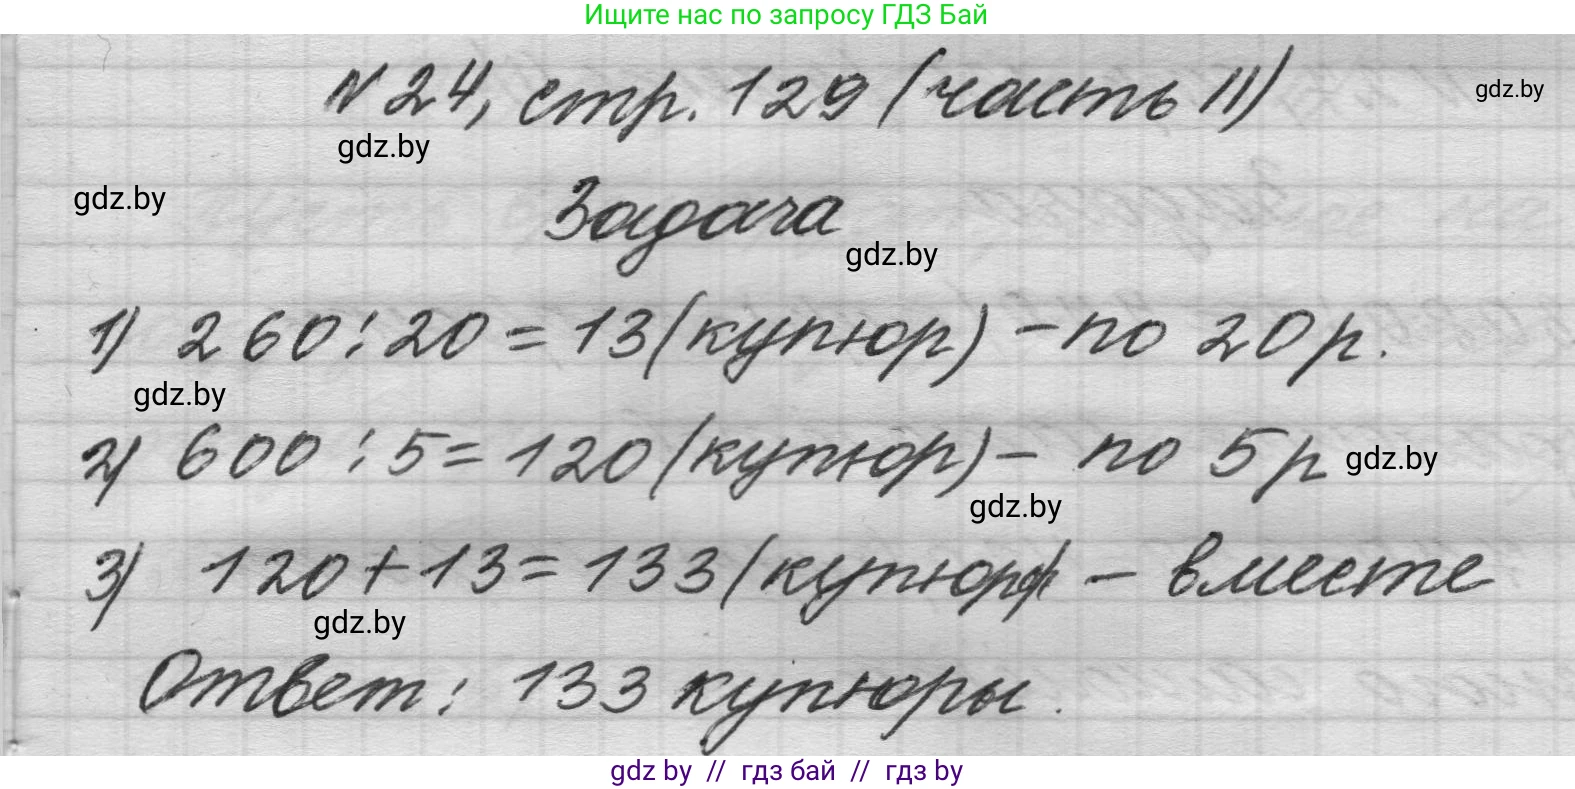 Ищите нас по запросу ГДЗ Бай
N 24, стр. 129 (часть II)
gdz.by
gdz.by
gdz.by
Задача
gdz.by
1) 260 : 20 = 13 (купюр) - по 20 р.
gdz.by
2) 600 : 5 = 120 (купюр) - по 5 р
gdz.by
gdz.by
3) 120 + 13 = 133 (купюр) - вместе
gdz.by
Ответ: 133 купюры.
gdz by // гдз бай // гдз by